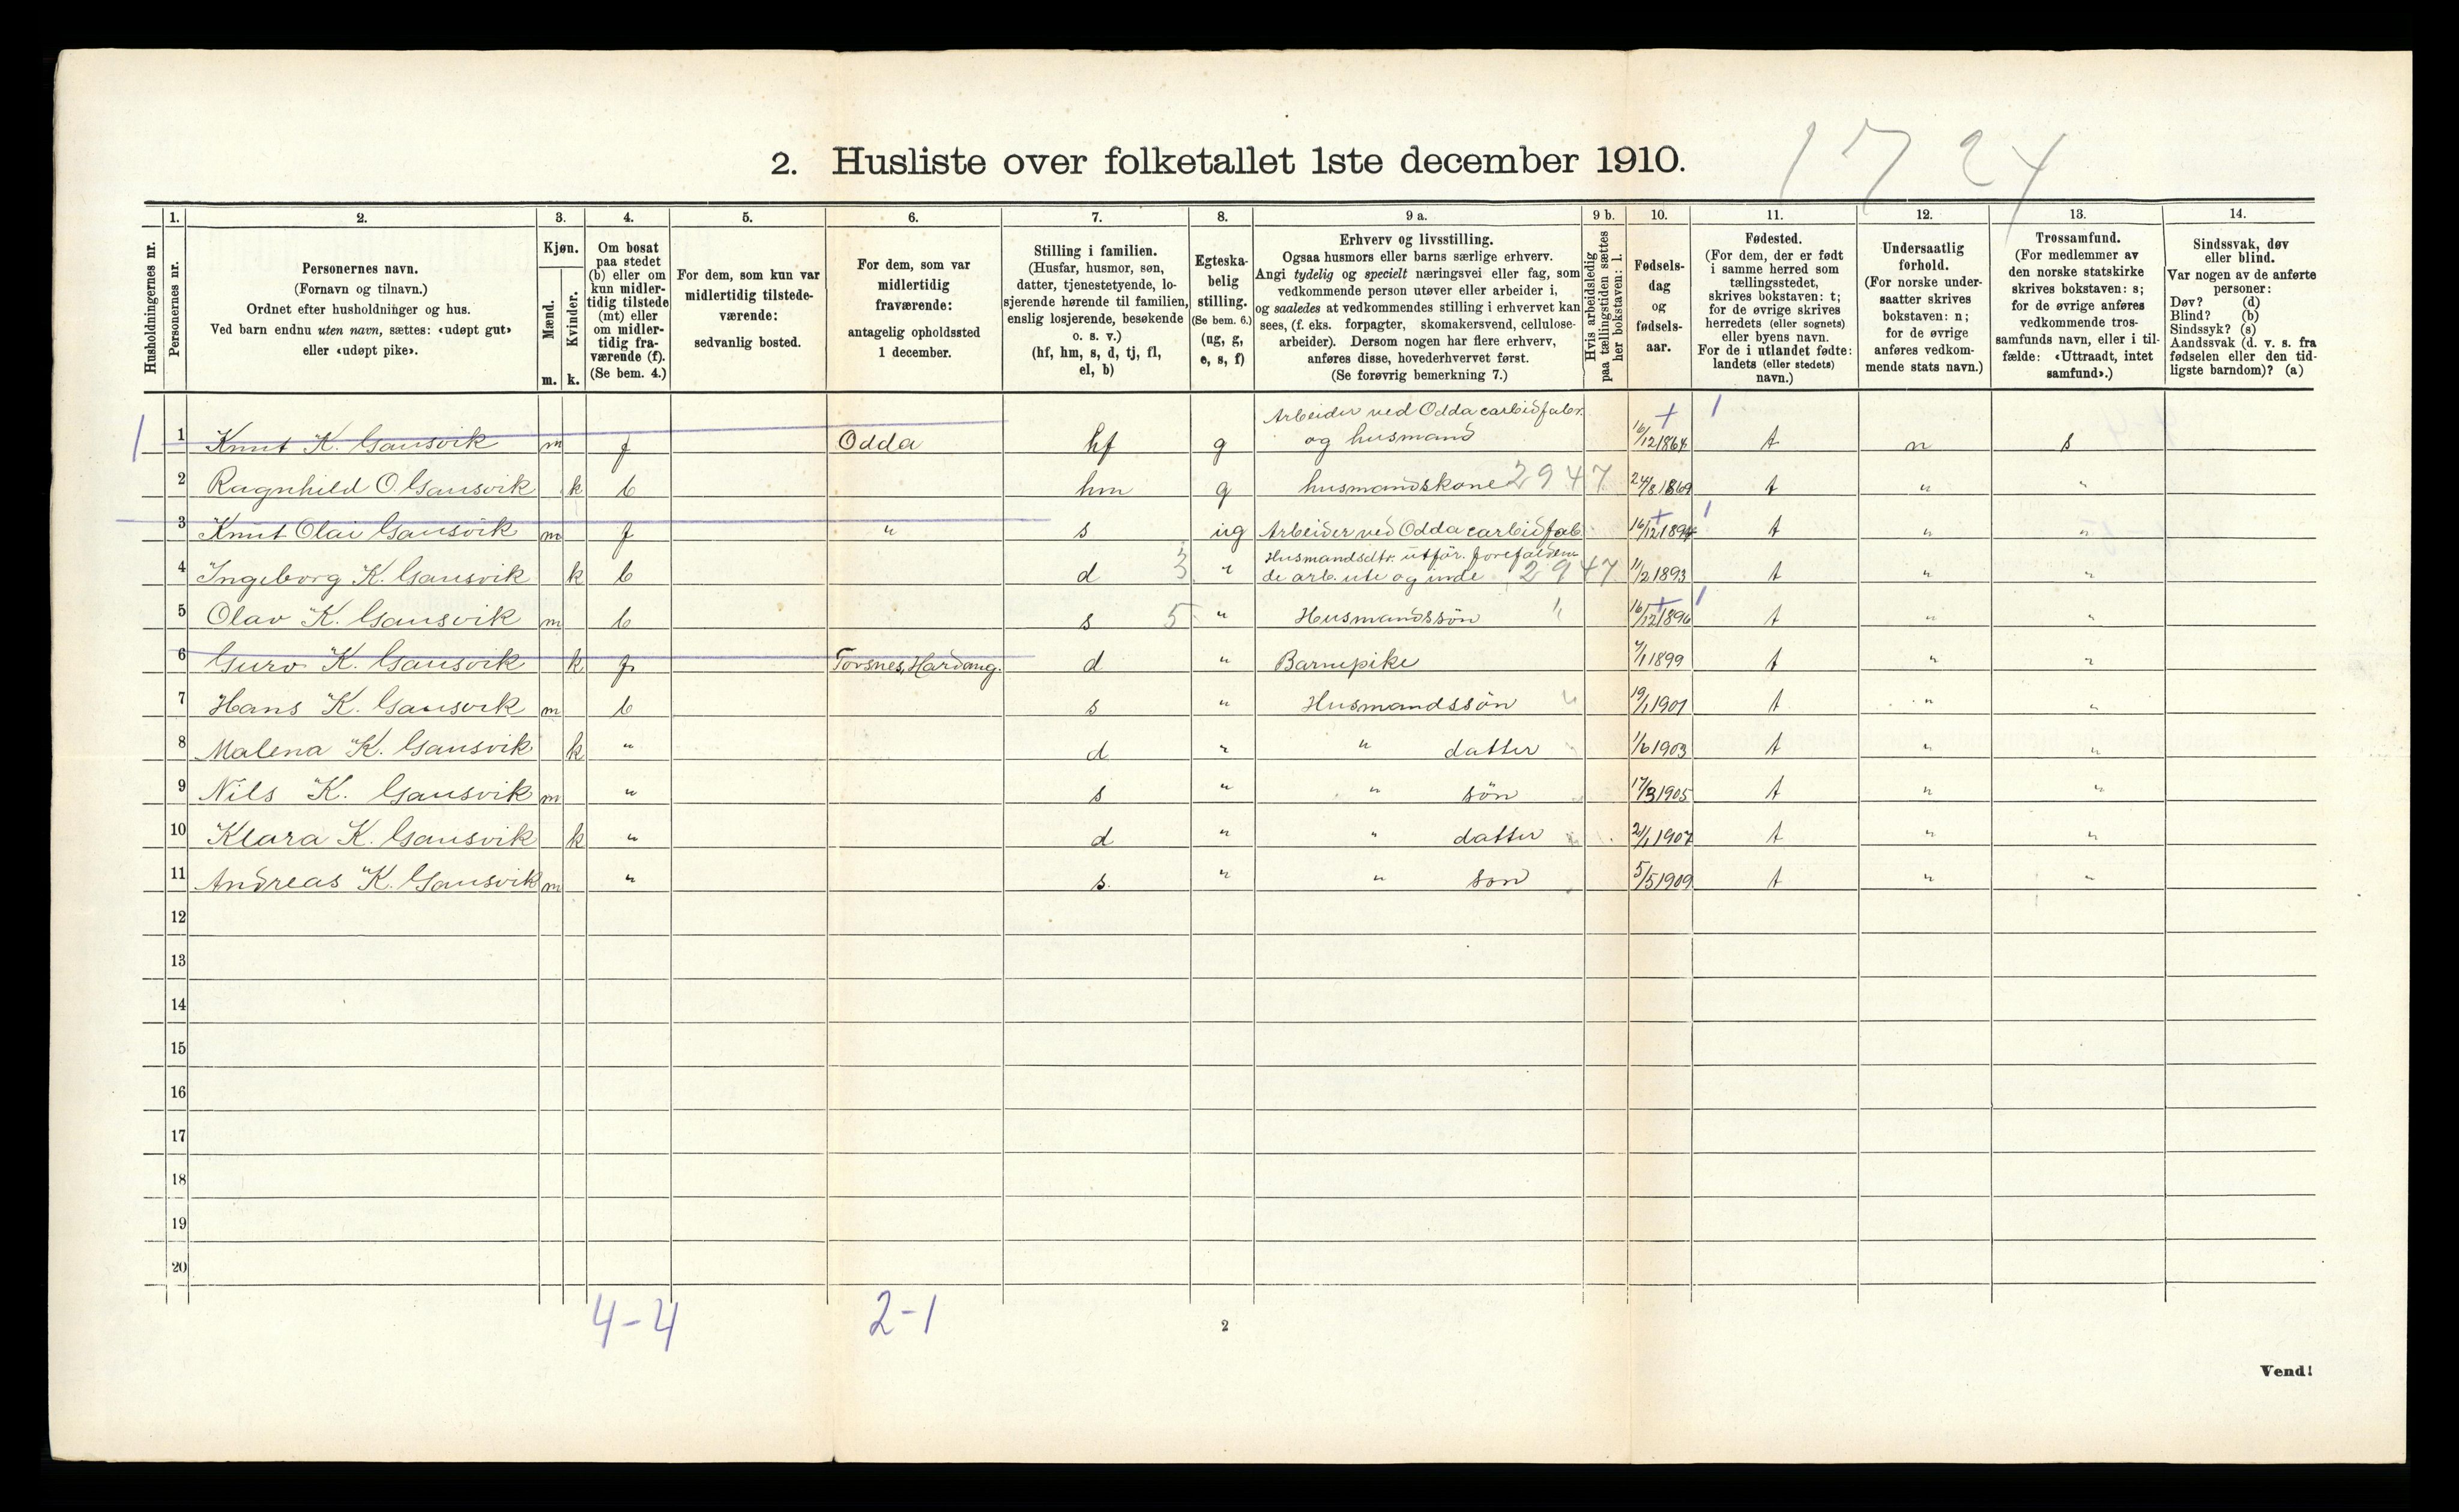 17 24
2. Husliste over folketallet 1ste december 1910.
1. 2. 3. 4. 5. 6. 7. 8. 9 a. 9 b. 10. 11. 12. 13. 14.
Husholdningernes nr.
Personernes nr.
Personernes navn.
(Fornavn og tilnavn.)
Ordnet efter husholdninger og hus.
Ved barn endnu uten navn, sættes: «udøpt gut»
eller «udøpt pike».
Kjøn.
Mænd.
Kvinder.
m. k.
Om bosat
paa stedet
(b) eller om
kun midler-
tidig tilstede
(mt) eller
om midler-
tidig fra-
værende (f).
(Se bem. 4.)
For dem, som kun var
midlertidig tilstede-
værende:
sedvanlig bosted.
For dem, som var
midlertidig
fraværende:
antagelig opholdssted
1 december.
Stilling i familien.
(Husfar, husmor, søn,
datter, tjenestetyende, lo-
sjerende hørende til familien,
enslig losjerende, besøkende
o. s. v.)
(hf, hm, s, d, tj, fl,
el, b)
Egteska-
belig
stilling.
(Se bem. 6.)
(ug, g,
e, s, f)
Erhverv og livsstilling.
Ogsaa husmors eller barns særlige erhverv.
Angi tydelig og specielt næringsvei eller fag, som
vedkommende person utøver eller arbeider i,
og saaledes at vedkommendes stilling i erhvervet kan
sees, (f. eks. forpagter, skomakersvend, cellulose-
arbeider). Dersom nogen har flere erhverv,
anføres disse, hovederhvervet først.
(Se forøvrig bemerkning 7.)
Hvis arbeidsledig
paa tællingstiden sættes
her bokstaven: l.
Fødsels-
dag
og
fødsels-
aar.
Fødested.
(For dem, der er født
i samme herred som
tællingsstedet,
skrives bokstaven: t;
for de øvrige skrives
herredets (eller sognets)
eller byens navn.
For de i utlandet fødte:
landets (eller stedets)
navn.)
Undersaatlig
forhold.
(For norske under-
saatter skrives
bokstaven: n;
for de øvrige
anføres vedkom-
mende stats navn.)
Trossamfund.
(For medlemmer av
den norske statskirke
skrives bokstaven: s;
for de øvrige anføres
vedkommende tros-
samfunds navn, eller i til-
fælde: «Uttraadt, intet
samfund».)
Sindssvak, døv
eller blind.
Var nogen av de anførte
personer:
Døv? (d)
Blind? (b)
Sindssyk? (s)
Aandssvak (d. v. s. fra
fødselen eller den tid-
ligste barndom)? (a)
Arbeider ved Odda carbidfabr.
1 1 Knut K. Gansvik m f Odda hf g og husmand 16/12 1864 t n s
2 Ragnhild O. Gansvik k b hm g husmandskone 2947 24/8 1869 t " "
3 Knut Olai Gansvik m f " s ug Arbeider ved Odda carbidfab. 16/12 1894 t " "
Husmandsdtr. utfør. forefalden-
4 Ingeborg K. Gansvik k b d 3 " de arb. ute og inde 2947 11/2 1893 t " "
5 Olav K. Gansvik m b s 5 " Husmandssön 16/12 1896 t " "
6 Guro K. Gansvik k f Torsnes, Hardang. d " Barnepike 7/1 1899 t " "
7 Hans K. Gansvik m b s " Husmandssön 19/1 1901 t " "
8 Malena K. Gansvik k " d " " datter 1/6 1903 t " "
9 Nils K. Gansvik m " s " " sön 17/3 1905 t " "
10 Klara K. Gansvik k " d " " datter 21/1 1907 t " "
11 Andreas K. Gansvik m " s. " " sön 5/5 1909 t " "
12
13
14
15
16
17
18
19
20
4-4 2-1
2
Vend!